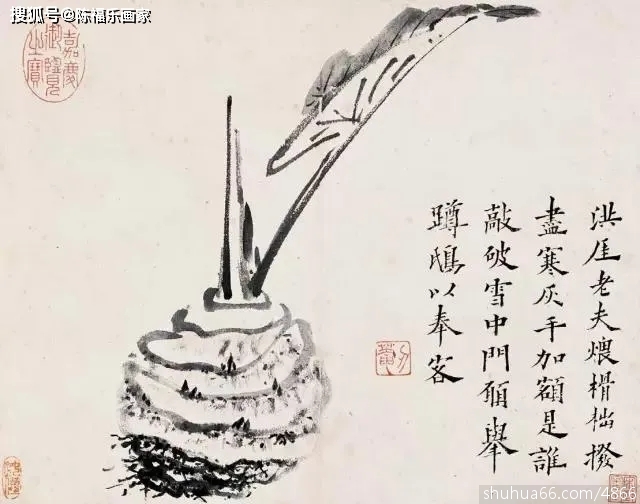 搜狐号@陈福乐画家
嘉慶御覽之寶
洪厓老夫煨榾柮撥
盡寒灰手加額是誰
敲破雪中門願舉
蹲鴟以奉客
shuhua66.com/4866